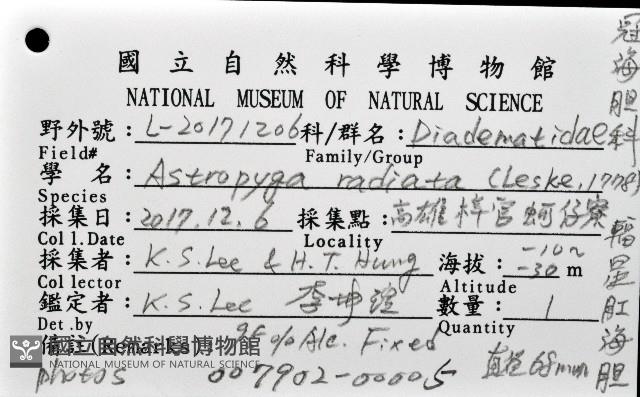 國立自然科學博物館
NATIONAL MUSEUM OF NATURAL SCIENCE
野外號：L-20171206 科/群名：Diadematidae
Field# Family/Group
學 名：Astropyga radiata (Leske, 1778)
Species
採集日：2017.12.6 採集點：高雄梓官蚵仔寮
Col l.Date Locality
採集者：K.S.Lee & H.T. Hung 海拔：-10~-30 m
Col lector Altitude
鑑定者：K.S.Lee 李坤瑄 數量：1
Det.by Quantity
備註(Remarks) 95%Alc. Fixed
photos 007902-00005 直徑68mm
冠海胆科
輻星肛海胆
國立自然科學博物館
NATIONAL MUSEUM OF NATURAL SCIENCE